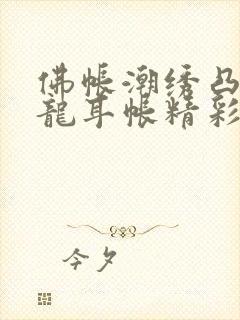 佛帐潮绣凸
龍耳帐精彩
今夕